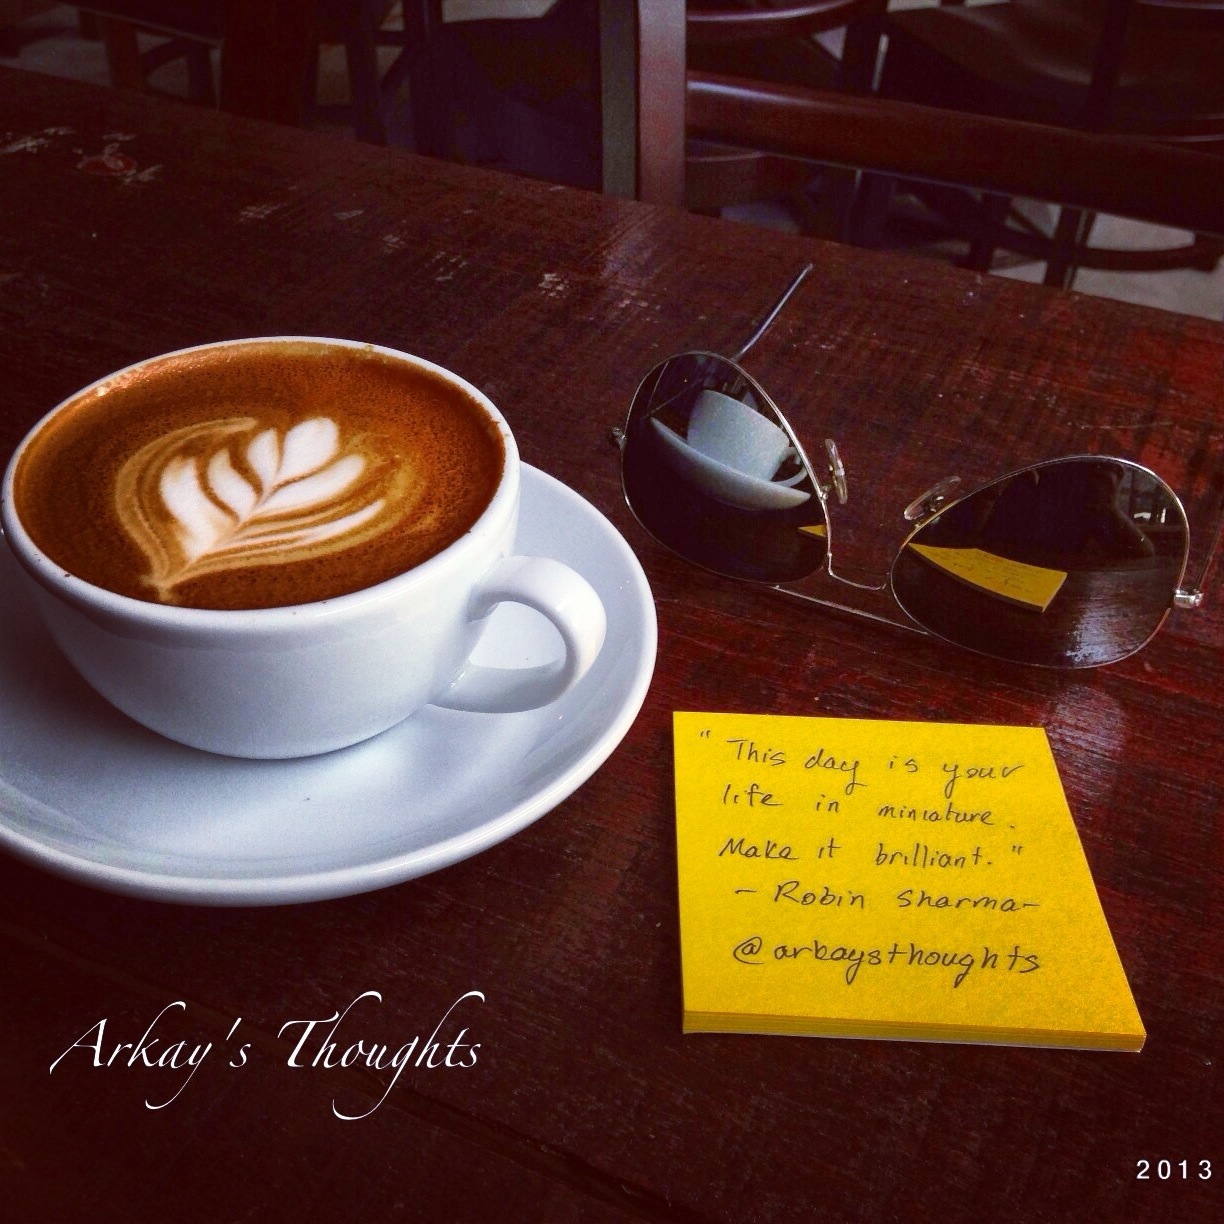 " This day is your
life in miniature.
Make it brilliant. "
- Robin Sharma -
@arkaysthoughts
Arkay's Thoughts
2013